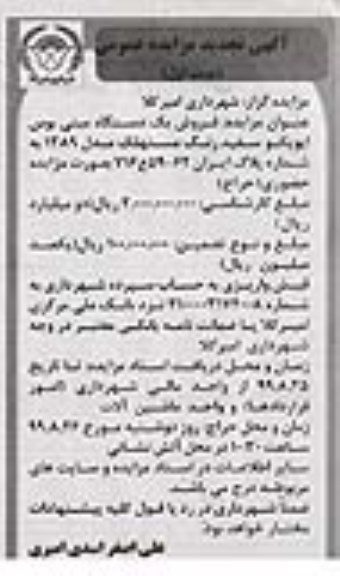 آگهی تجدید مزایده عمومی
(نوبت اول)
مزایده گزار: شهرداری امیرکلا
عنوان مزایده: فروش یک دستگاه مینی بوس
ایویکو سفید رنگ مستهلک مدل ۱۳۸۹ به
شماره پلاک ایران ۶۲-۵۹ع۲۱۶ بصورت مزایده
حضوری( حراج)
مبلغ کارشناسی: ۲,۰۰۰,۰۰۰,۰۰۰ ریال(دو میلیارد
ریال)
مبلغ و نوع تضمین: ۱۰۰,۰۰۰,۰۰۰ ریال(یکصد
میلیون ریال)
فیش واریزی به حساب سپرده شهرداری به
شماره نزد بانک ملی مرکزی
امیرکلا یا ضمانت نامه بانکی معتبر در وجه
شهرداری امیرکلا
زمان و محل دریافت اسناد مزایده: تا تاریخ
۹۹,۸,۲۵ از واحد مالی شهرداری (امور
قراردادها) و واحد ماشین آلات
زمان و محل حراج: روز دوشنبه مورخ ۹۹,۸,۲۶
ساعت ۱۰:۳۰ در محل آتش نشانی
سایر اطلاعات در اسناد مزایده و سایت های
مربوطه درج می باشد.
ضمناً شهرداری در رد یا قبول کلیه پیشنهادات
مختار خواهد بود.
علی اصغر اسدی امیری